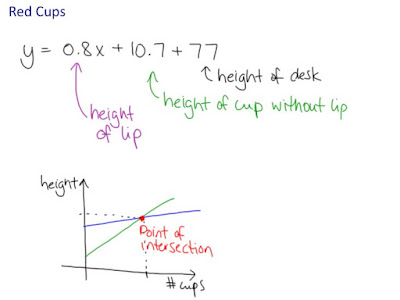 Red Cups
y = 0.8x + 10.7 + 77
height of desk
height of cup without lip
height of lip
height
Point of intersection
# cups